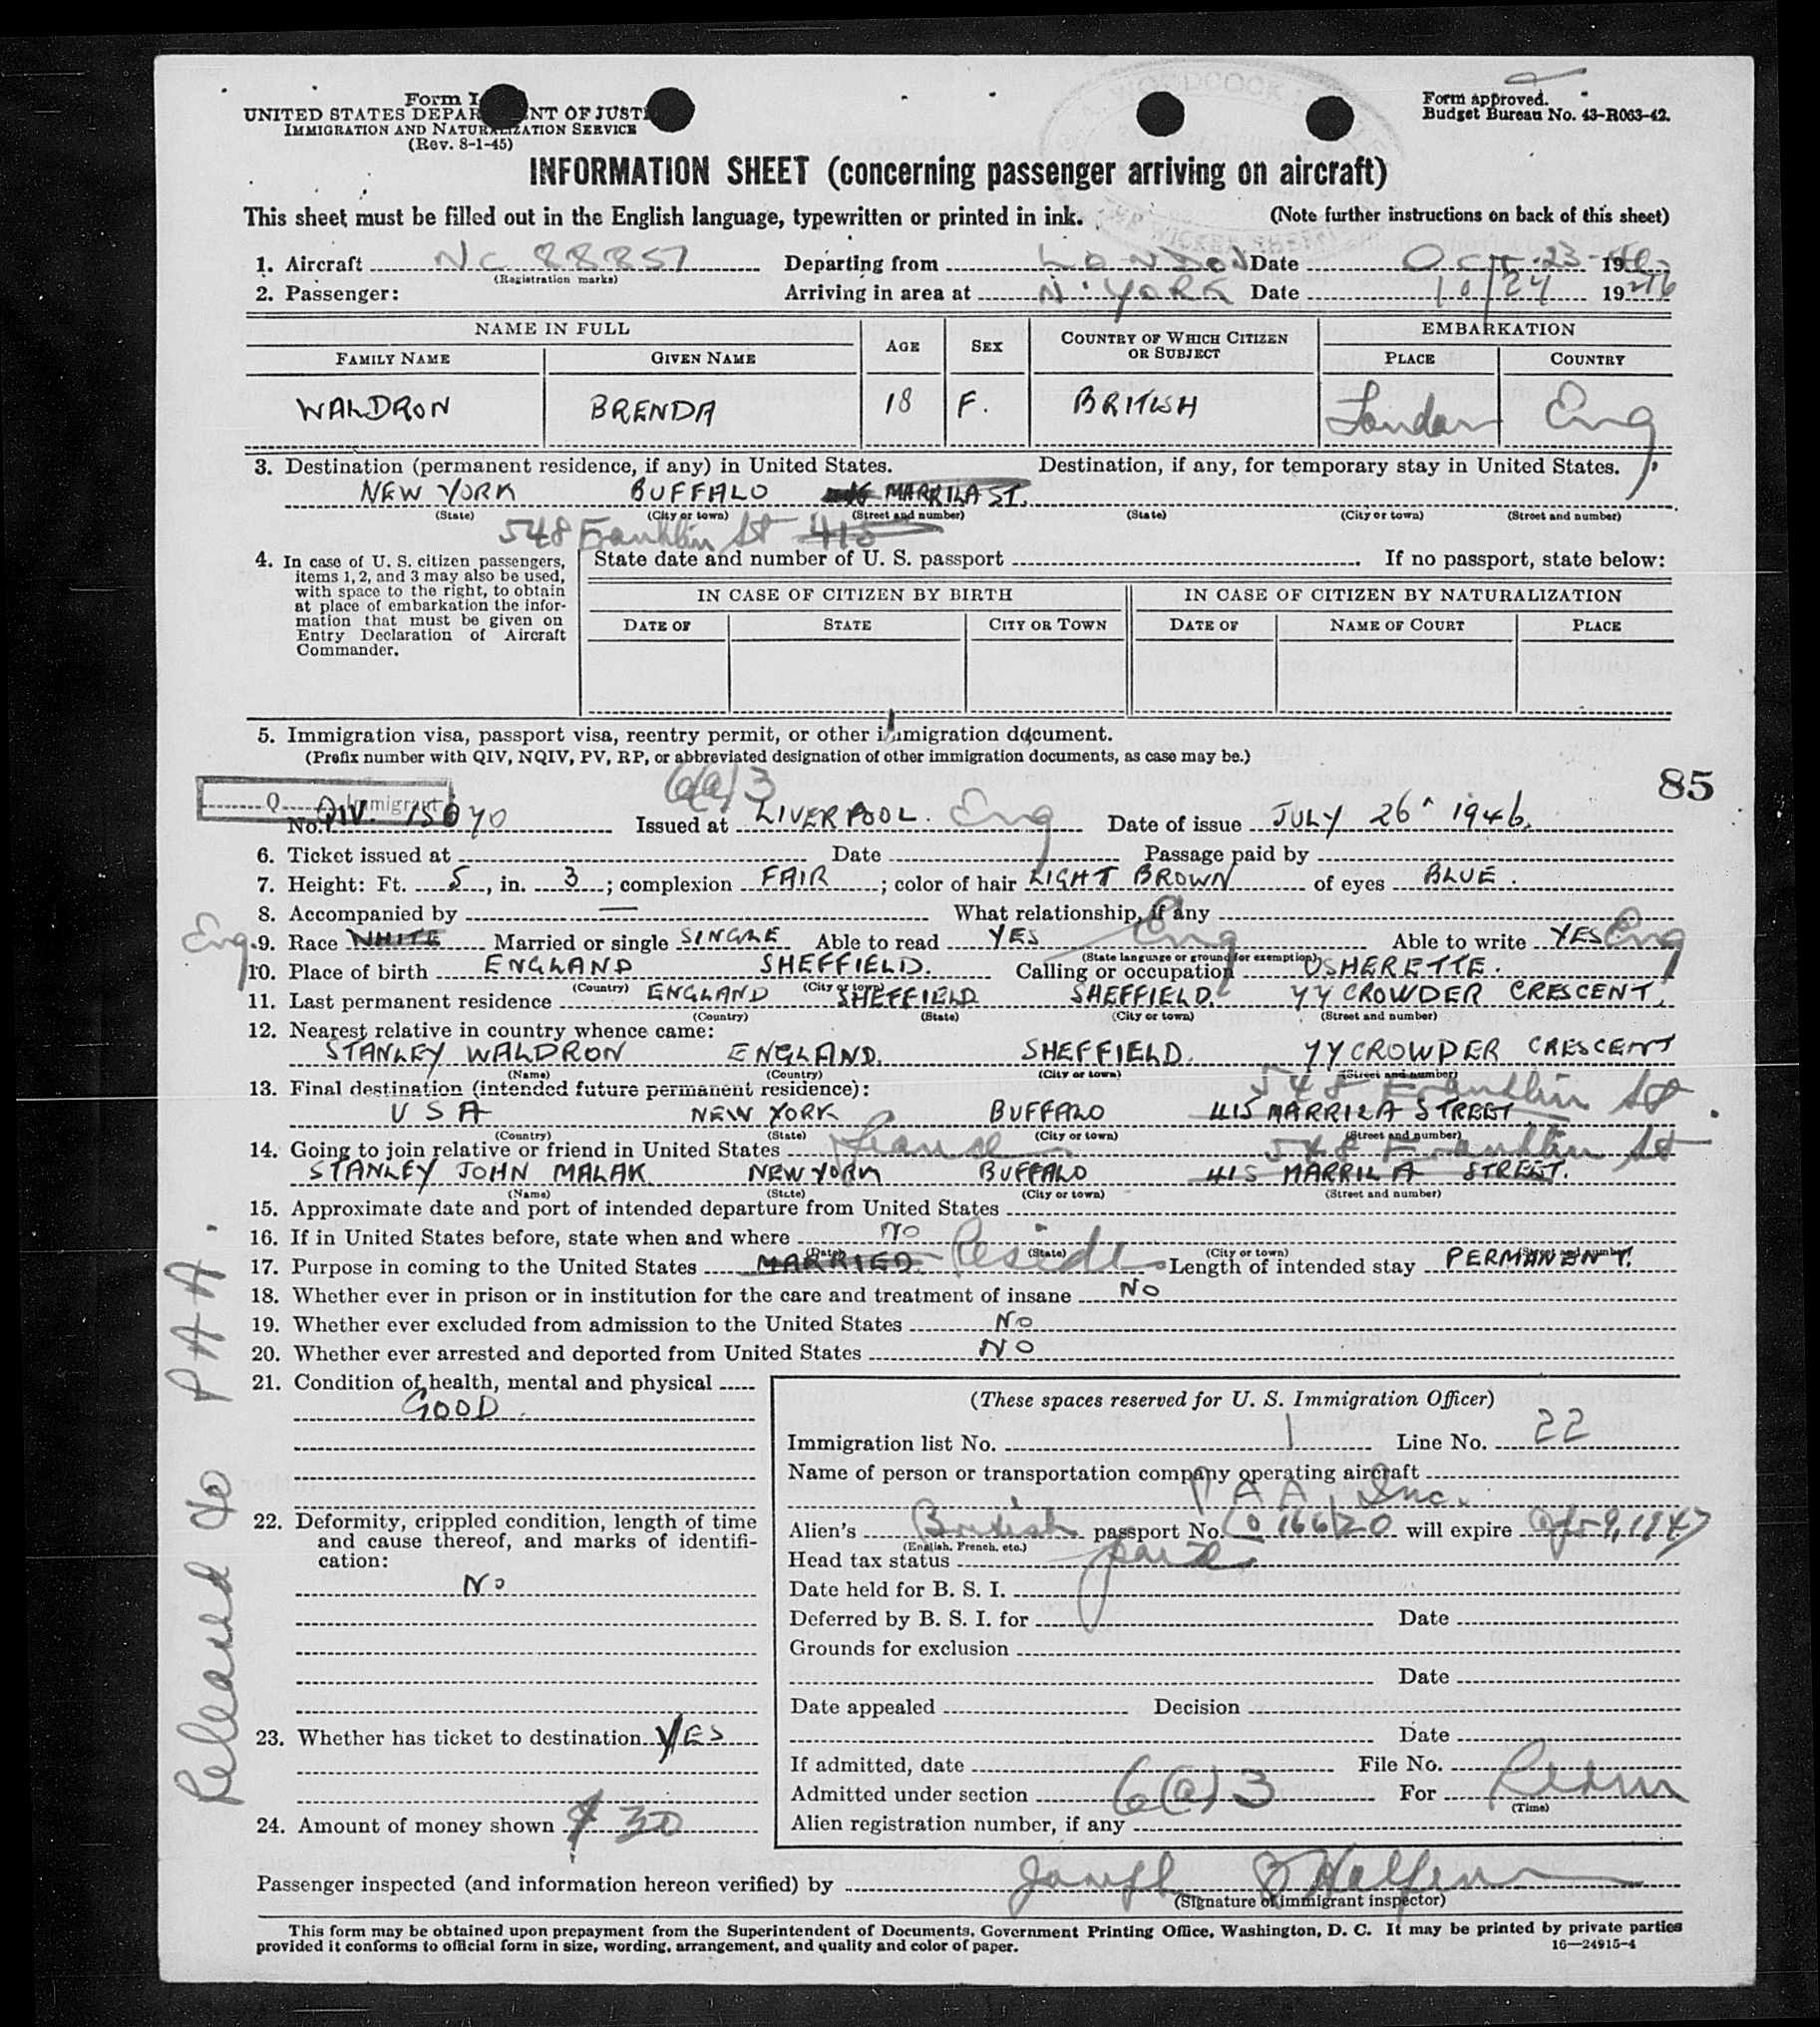 Form I
UNITED STATES DEPAR NT OF JUST
IMMIGRATION AND NATURALIZATION SERVICE
(Rev. 8-1-45)
Form approved.
Budget Bureau No. 43-R063-42.
WOODCOCK
INFORMATION SHEET (concerning passenger arriving on aircraft)
This sheet must be filled out in the English language, typewritten or printed in ink. (Note further instructions on back of this sheet)
1. Aircraft NC 88857 Departing from LONDON Date Oct. 23 1946
(Registration marks)
2. Passenger: Arriving in area at N. YORK Date 10/24 1946
NAME IN FULL AGE SEX COUNTRY OF WHICH CITIZEN OR SUBJECT EMBARKATION
FAMILY NAME GIVEN NAME PLACE COUNTRY
WALDRON BRENDA 18 F. BRITISH London Eng
3. Destination (permanent residence, if any) in United States. Destination, if any, for temporary stay in United States.
NEW YORK BUFFALO MARRILA ST.
(State) (City or town) (Street and number) (State) (City or town) (Street and number)
548 Franklin St 415
4. In case of U. S. citizen passengers, items 1, 2, and 3 may also be used, with space to the right, to obtain at place of embarkation the information that must be given on Entry Declaration of Aircraft Commander.
State date and number of U. S. passport . If no passport, state below:
IN CASE OF CITIZEN BY BIRTH IN CASE OF CITIZEN BY NATURALIZATION
DATE OF STATE CITY OR TOWN DATE OF NAME OF COURT PLACE
5. Immigration visa, passport visa, reentry permit, or other immigration document.
(Prefix number with QIV, NQIV, PV, RP, or abbreviated designation of other immigration documents, as case may be.)
6(a)3
85
Q Immigrant
No. QIV. 15040 Issued at LIVERPOOL. Eng Date of issue JULY 26 1946.
6. Ticket issued at Date Passage paid by
7. Height: Ft. 5, in. 3; complexion FAIR; color of hair LIGHT BROWN of eyes BLUE.
8. Accompanied by — What relationship, if any
Eng. 9. Race WHITE Married or single SINGLE Able to read YES Eng Able to write YES Eng
(State language or ground for exemption)
10. Place of birth ENGLAND SHEFFIELD. Calling or occupation USHERETTE.
(Country) (City or town)
11. Last permanent residence ENGLAND SHEFFIELD SHEFFIELD. YY CROWDER CRESCENT.
(Country) (State) (City or town) (Street and number)
12. Nearest relative in country whence came:
STANLEY WALDRON ENGLAND. SHEFFIELD. YY CROWDER CRESCENT
(Name) (Country) (City or town) (Street and number)
13. Final destination (intended future permanent residence): 548 Franklin St.
U S A NEW YORK BUFFALO 415 MARRILA STREET
(Country) (State) (City or town) (Street and number)
14. Going to join relative or friend in United States 548 Franklin St
STANLEY JOHN MALAK NEW YORK BUFFALO 415 MARRILA STREET.
(Name) (State) (City or town) (Street and number)
15. Approximate date and port of intended departure from United States
16. If in United States before, state when and where NO
(Date) (State) (City or town) (Street and number)
17. Purpose in coming to the United States MARRIED Reside Length of intended stay PERMANENT.
18. Whether ever in prison or in institution for the care and treatment of insane NO
19. Whether ever excluded from admission to the United States NO
20. Whether ever arrested and deported from United States NO
21. Condition of health, mental and physical
GOOD.
22. Deformity, crippled condition, length of time and cause thereof, and marks of identification:
NO
23. Whether has ticket to destination YES
24. Amount of money shown $ 30
Released to P A A.
(These spaces reserved for U. S. Immigration Officer)
Immigration list No. 1 Line No. 22
Name of person or transportation company operating aircraft
P A A Inc.
Alien's British passport No. 016620 will expire 9, 1947
(English, French, etc.)
Head tax status paid
Date held for B. S. I.
Deferred by B. S. I. for Date
Grounds for exclusion
Date
Date appealed Decision
Date
If admitted, date File No.
Admitted under section 6(a)3 For Perm
(Time)
Alien registration number, if any
Passenger inspected (and information hereon verified) by Joseph
(Signature of immigrant inspector)
This form may be obtained upon prepayment from the Superintendent of Documents, Government Printing Office, Washington, D. C. It may be printed by private parties
provided it conforms to official form in size, wording, arrangement, and quality and color of paper. 16—24915-4